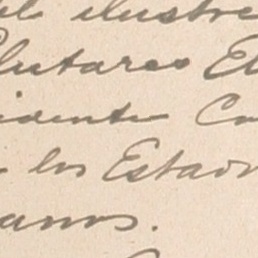 el ilustre
Plutarco El
idente Co
los Estado
anos.